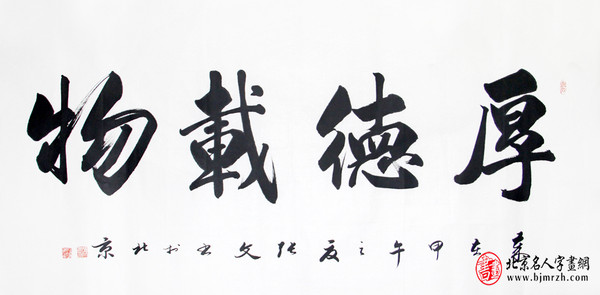 厚德載物
歲在甲午之夏张文书於北京
北京名人字畫網
www.bjmrzh.com